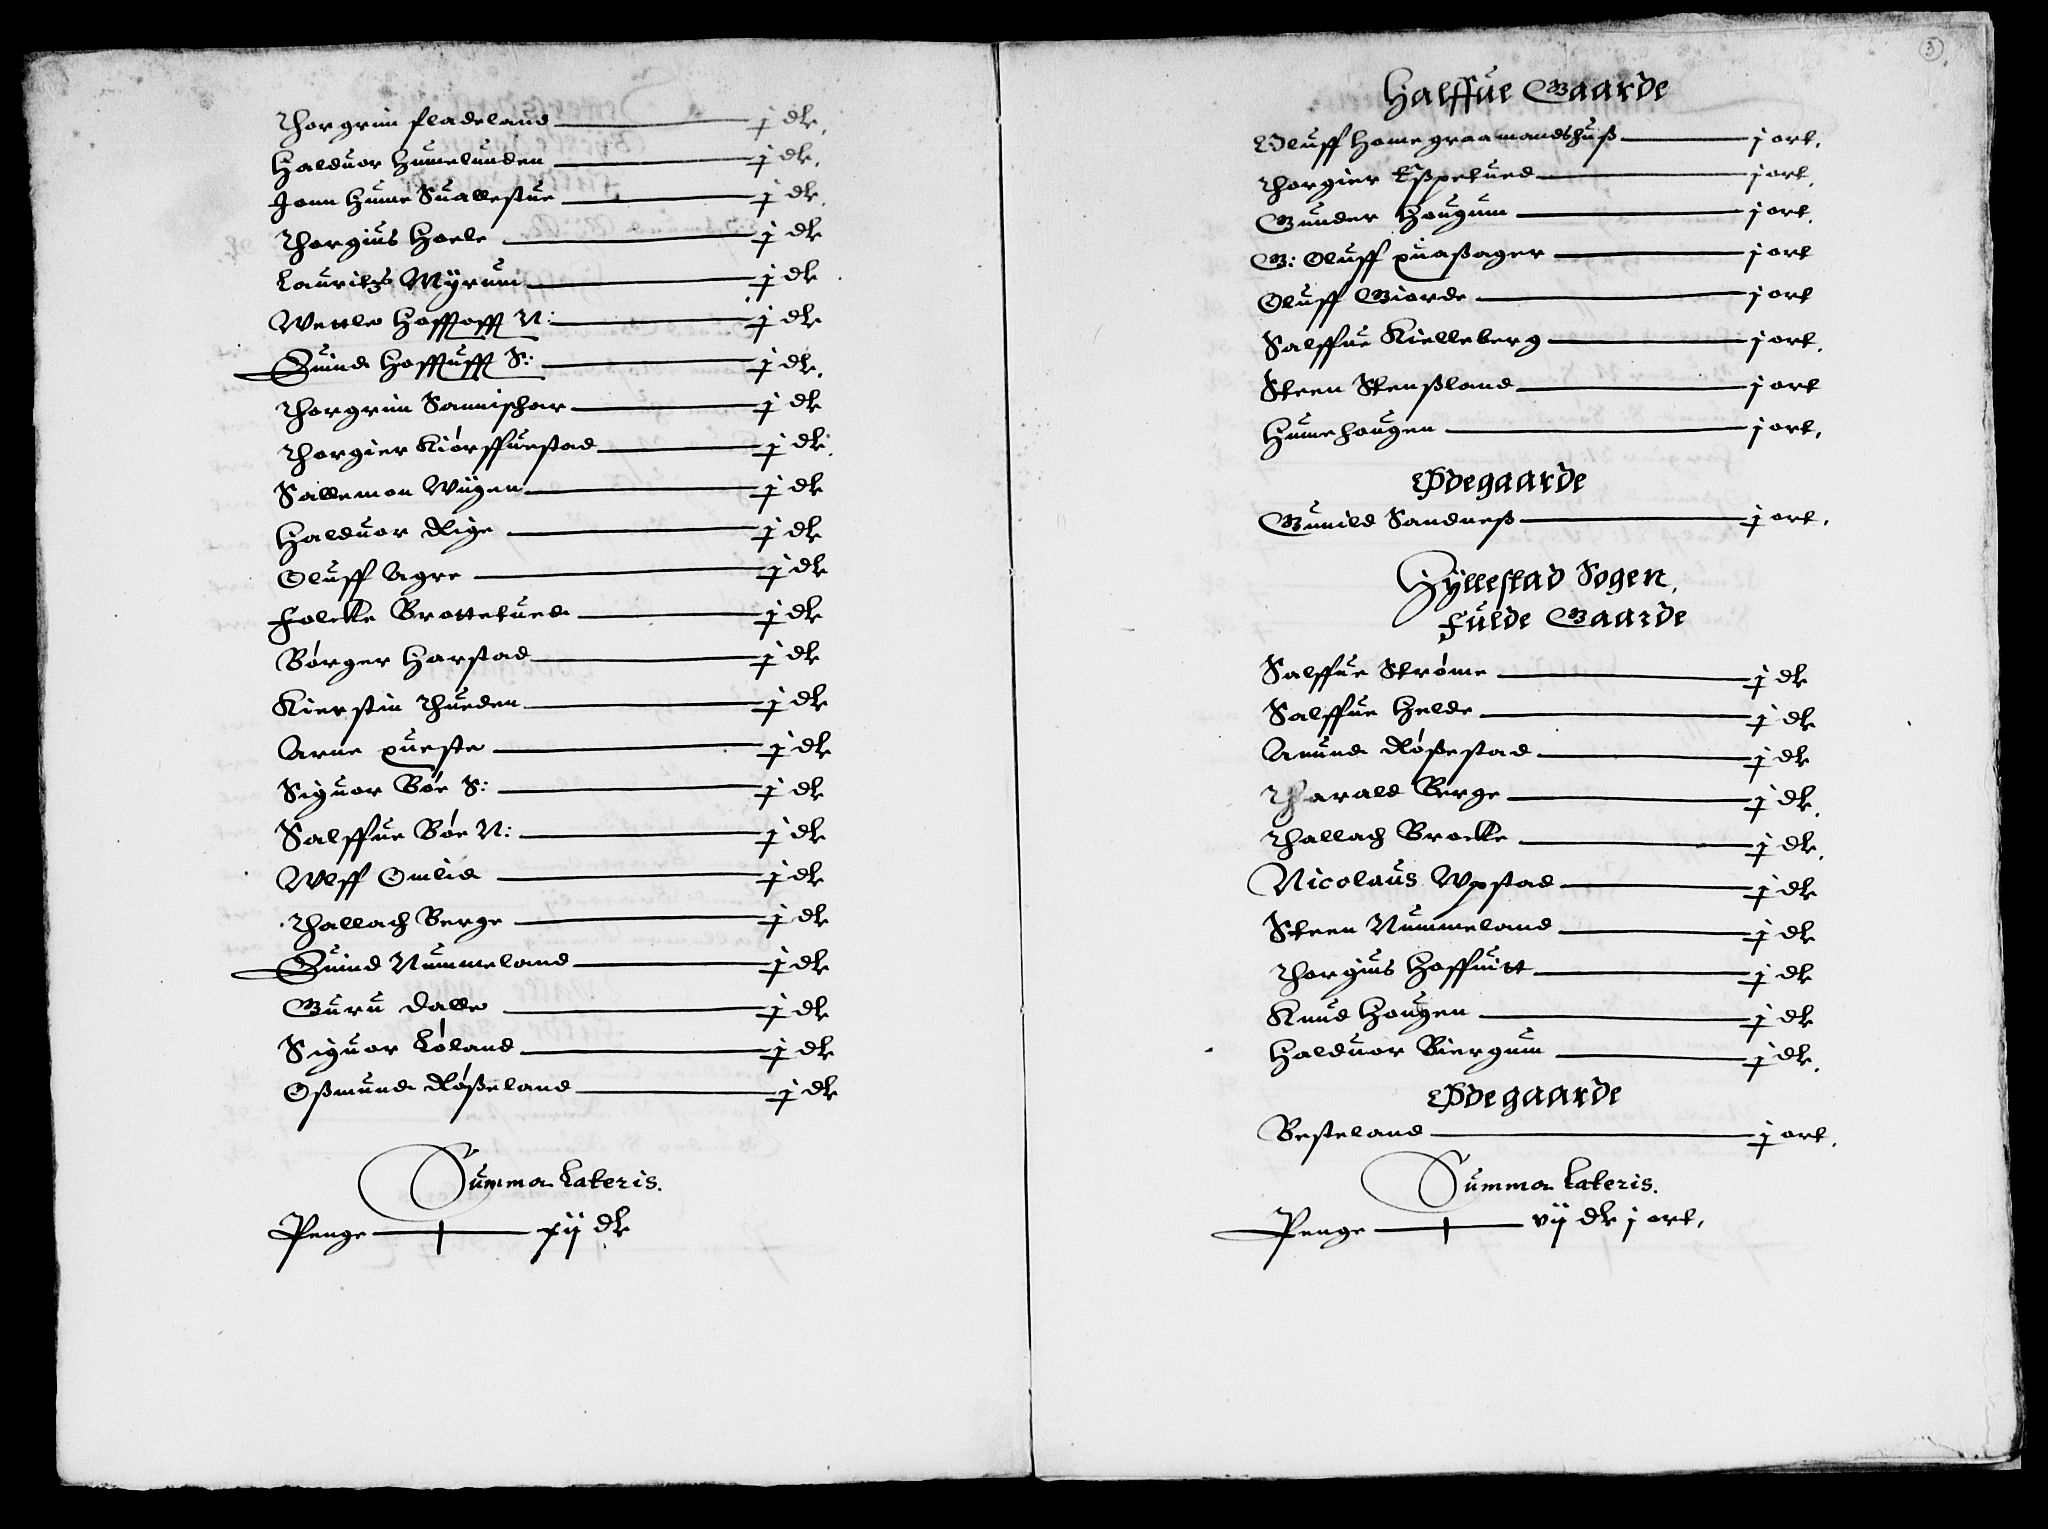 Thorgrim fladeland j dlr.
Halduor Humelunden j dlr.
Jonn Hume Suallestue j dlr.
Thorgius Hoele j dlr
Lauritzs Myrum j dlr
Wettle Hoffsofft N: j dlr
Suind Hoffsufft S: j dlr.
Thorgrim Sannischar j dlr
Thorgier Kiórffuestad j dlr.
Sallemon Wiigen j dlr
Halduor Rige j dlr
Oluff Agre j dlr
Folcke Brottetued j dlr
Bórger Harstad j dlr
Kierstin Thueden j dlr
Arne queste j dlr
Siguor Bóe S: j dlr
Salffue Bóe N: j dlr
Wlff Omlid j dlr
Thallach Berge j dlr
Suind Nummeland j dlr
Guru Dalle j dlr
Siguor Lóland j dlr
Oßmund Róßeland j dlr
Summa Lateris.
Penge xij dlr
3
Halffue Gaarde
Oluff Home graamandshuß j ort.
Thorgier Eßpetued j ort.
Gunder Hougum j ort.
G: Oluff quaßager j ort
Oluff Giorde j ort
Salffue Kielleberg j ort.
Steen Stenßland j ort
Humehougen j ort.
Ødegaarde
Gunild Sandneß j ort.
Hyllestad Sogen.
Fulde Gaarde
Salffue Stróme j dlr
Salffue Helde j dlr
Amund Róßestad j dlr
Tharald Berge j dlr.
Thallach Brocke j dlr.
Nicolaus Wpstad j dlr
Steen Nummeland j dlr
Thorgius Hoffuitt j dlr
Knud Hougen j dlr
Halduor Biergum j dlr.
Ødegaarde
Besteland j ort.
Summa Lateris.
Penge vij dlr j ort.